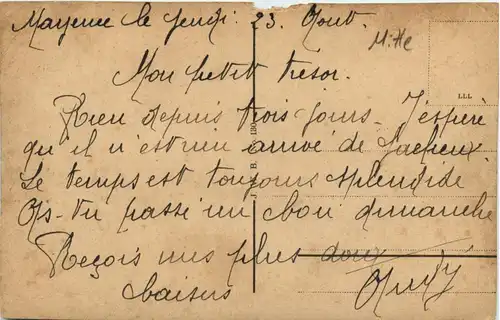 Mayence le jeudi 23. Aout.
Mlle
Mon petit trésor.
LLL
Rien depuis trois jours. J'espère
qu'il n'est rien arrivé de facheux.
Le temps est toujours splendide
As-tu passé un bon dimanche
Reçois mes plus doux
baisers